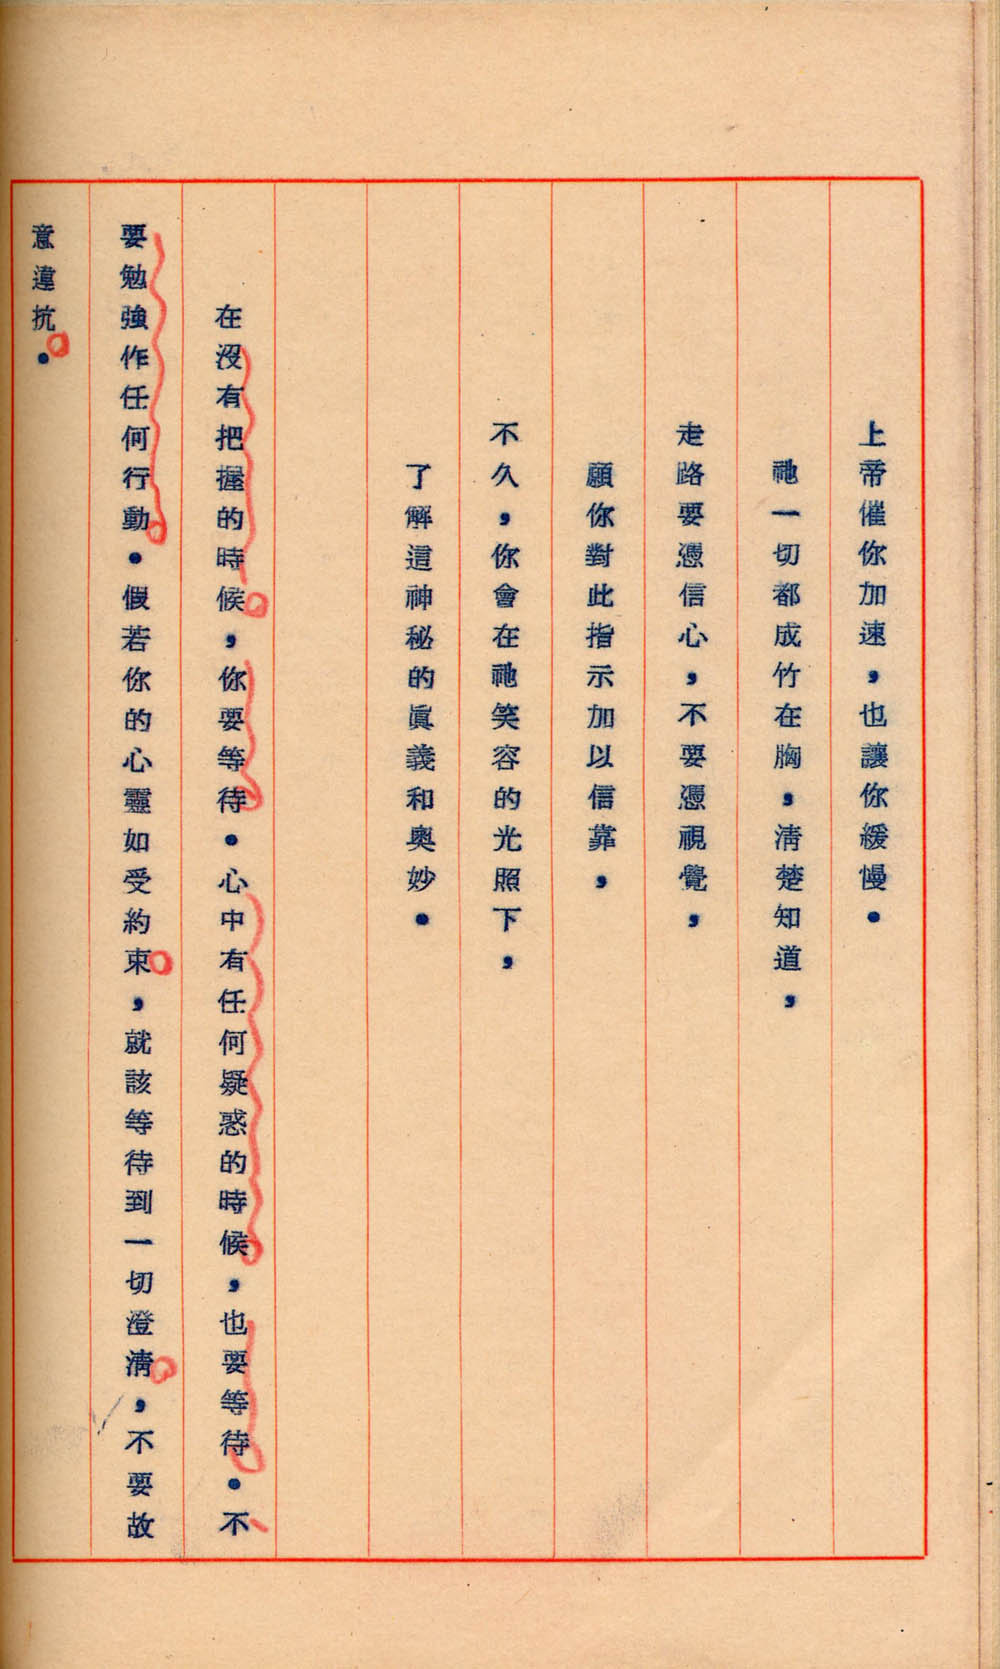 上帝催你加速，也讓你緩慢。
祂一切都成竹在胸，清楚知道，
走路要憑信心，不要憑視覺，
願你對此指示加以信靠，
不久，你會在祂笑容的光照下，
了解這神秘的眞義和奧妙。
在沒有把握的時候，你要等待。心中有任何疑惑的時候，也要等待。不
要勉強作任何行動。假若你的心靈如受約束，就該等待到一切澄清，不要故
意違抗。